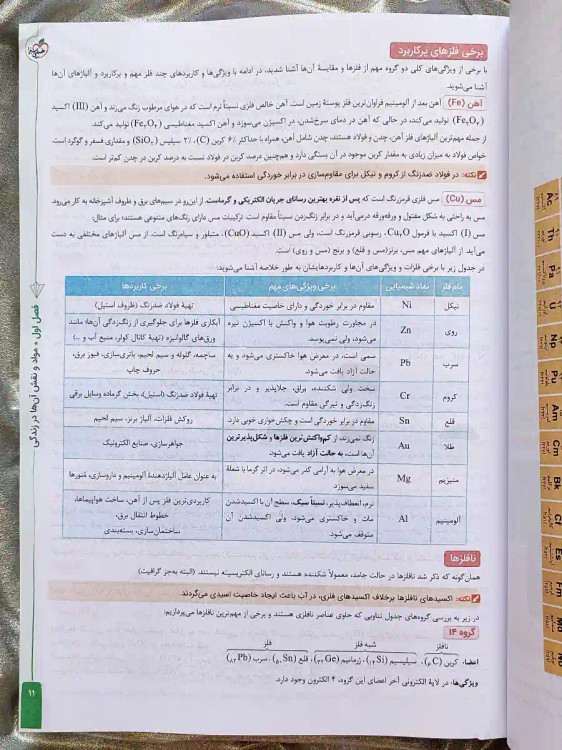 برخی فلزهای پرکاربرد
با برخی از ویژگی‌های کلی دو گروه مهم از فلزها و مقایسهٔ آن‌ها آشنا شدید، در ادامه با ویژگی‌ها و کاربردهای چند فلز مهم و پرکاربرد و آلیاژهای آن‌ها
آشنا می‌شوید.
آهن (Fe) آهن بعد از آلومینیم فراوان‌ترین فلز پوستهٔ زمین است. آهن خالص فلزی نسبتاً نرم است که در هوای مرطوب زنگ می‌زند و آهن (III) اکسید
(Fe₂O₃) تولید می‌کند، در حالی که آهن در دمای سرخ‌شدن، در اکسیژن می‌سوزد و آهن اکسید مغناطیسی (Fe₃O₄) تولید می‌کند.
از جمله مهم‌ترین آلیاژهای فلز آهن، چدن و فولاد هستند، چدن شامل آهن، همراه با حداکثر ۶٪ کربن (C)، ۳٪ سیلیس (SiO₂) و مقداری فسفر و گوگرد است.
خواص فولاد به میزان زیادی به مقدار کربن موجود در آن بستگی دارد و هم‌چنین درصد کربن در فولاد نسبت به درصد کربن در چدن کم‌تر است.
نکته: در فولاد ضدزنگ از کروم و نیکل برای مقاوم‌سازی در برابر خوردگی استفاده می‌شود.
مس (Cu) مس فلزی قرمزرنگ است که پس از نقره بهترین رسانای جریان الکتریکی و گرماست. از این‌رو در سیم‌های برق و ظروف آشپزخانه به کار می‌رود.
مس به راحتی به شکل مفتول و ورقه‌ورقه درمی‌آید و در برابر زنگ‌زدن نسبتاً مقاوم است. ترکیبات مس دارای رنگ‌های متنوعی هستند؛ برای مثال:
مس (I) اکسید با فرمول Cu₂O، رسوبی قرمزرنگ است، ولی مس (II) اکسید (CuO)، متبلور و سیاه‌رنگ است. از مس آلیاژهای مختلفی به دست
می‌آید. از آلیاژهای مهم مس، برنز (مس و قلع) و برنج (مس و روی) است.
در جدول زیر با برخی فلزات و ویژگی‌های آن‌ها و کاربردهایشان به طور خلاصه آشنا می‌شوید:
نام فلز نماد شیمیایی برخی ویژگی‌های مهم برخی کاربردها
نیکل Ni مقاوم در برابر خوردگی و دارای خاصیت مغناطیسی تهیهٔ فولاد ضدزنگ (ظروف استیل)
روی Zn در مجاورت رطوبت هوا و واکنش با اکسیژن تیره می‌شود، ولی نمی‌پوسد. آبکاری فلزها برای جلوگیری از زنگ‌زدگی آن‌ها؛ مانند ورق‌های گالوانیزه (تهیهٔ کانال کولر، منبع آب و ...)
سرب Pb سمی است، در معرض هوا خاکستری می‌شود و به حالت آزاد یافت می‌شود. ساچمه، گلوله و سیم لحیم، باتری‌سازی، فیوز برق، حروف چاپ
کروم Cr سخت ولی شکننده، براق، جلاپذیر و در برابر زنگ‌زدگی و تیرگی مقاوم است. تهیهٔ فولاد ضدزنگ (استیل)، بخش گرماده وسایل برقی
قلع Sn مقاوم در برابر خوردگی است و چکش‌خواری خوبی دارد. روکش فلزات، آلیاژ برنز، سیم لحیم
طلا Au زنگ نمی‌زند، از کم‌واکنش‌ترین فلزها و شکل‌پذیرترین آن‌ها است، به حالت آزاد یافت می‌شود. جواهرسازی، صنایع الکترونیک
منیزیم Mg در معرض هوا به آرامی کدر می‌شود، در اثر گرما با شعلهٔ سفید می‌سوزد. به عنوان عامل آلیاژدهندهٔ آلومینیم و داروسازی، منورها
آلومینیم Al نرم، انعطاف‌پذیر، نسبتاً سبک، سطح آن با اکسیدشدن مات و خاکستری می‌شود، ولی اکسیدشدن آن متوقف می‌شود. کاربردی‌ترین فلز پس از آهن، ساخت هواپیماها، خطوط انتقال برق، ساختمان‌سازی، بسته‌بندی
نافلزها
همان‌گونه که ذکر شد نافلزها در حالت جامد، معمولاً شکننده هستند و رسانای الکتریسیته نیستند. (البته به‌جز گرافیت)
نکته: اکسیدهای نافلزها برخلاف اکسیدهای فلزی، در آب باعث ایجاد خاصیت اسیدی می‌گردند.
در زیر به بررسی گروه‌های جدول تناوبی که حاوی عناصر نافلزی هستند و برخی از مهم‌ترین نافلزها می‌پردازیم:
گروه ۱۴
نافلز شبه فلز فلز
اعضا: کربن (₆C)، سیلیسیم (₁₄Si)، ژرمانیم (₃₂Ge)، قلع (₅₀Sn)، سرب (₈₂Pb)
ویژگی‌ها: در لایهٔ الکترونی آخر اعضای این گروه، ۴ الکترون وجود دارد.
فصل اول • مواد و نقش آن‌ها در زندگی
۱۱
Ac
Pa
U
Np
Pu
Am
Cm
Bk
Cf
Es
Fm
Md
No